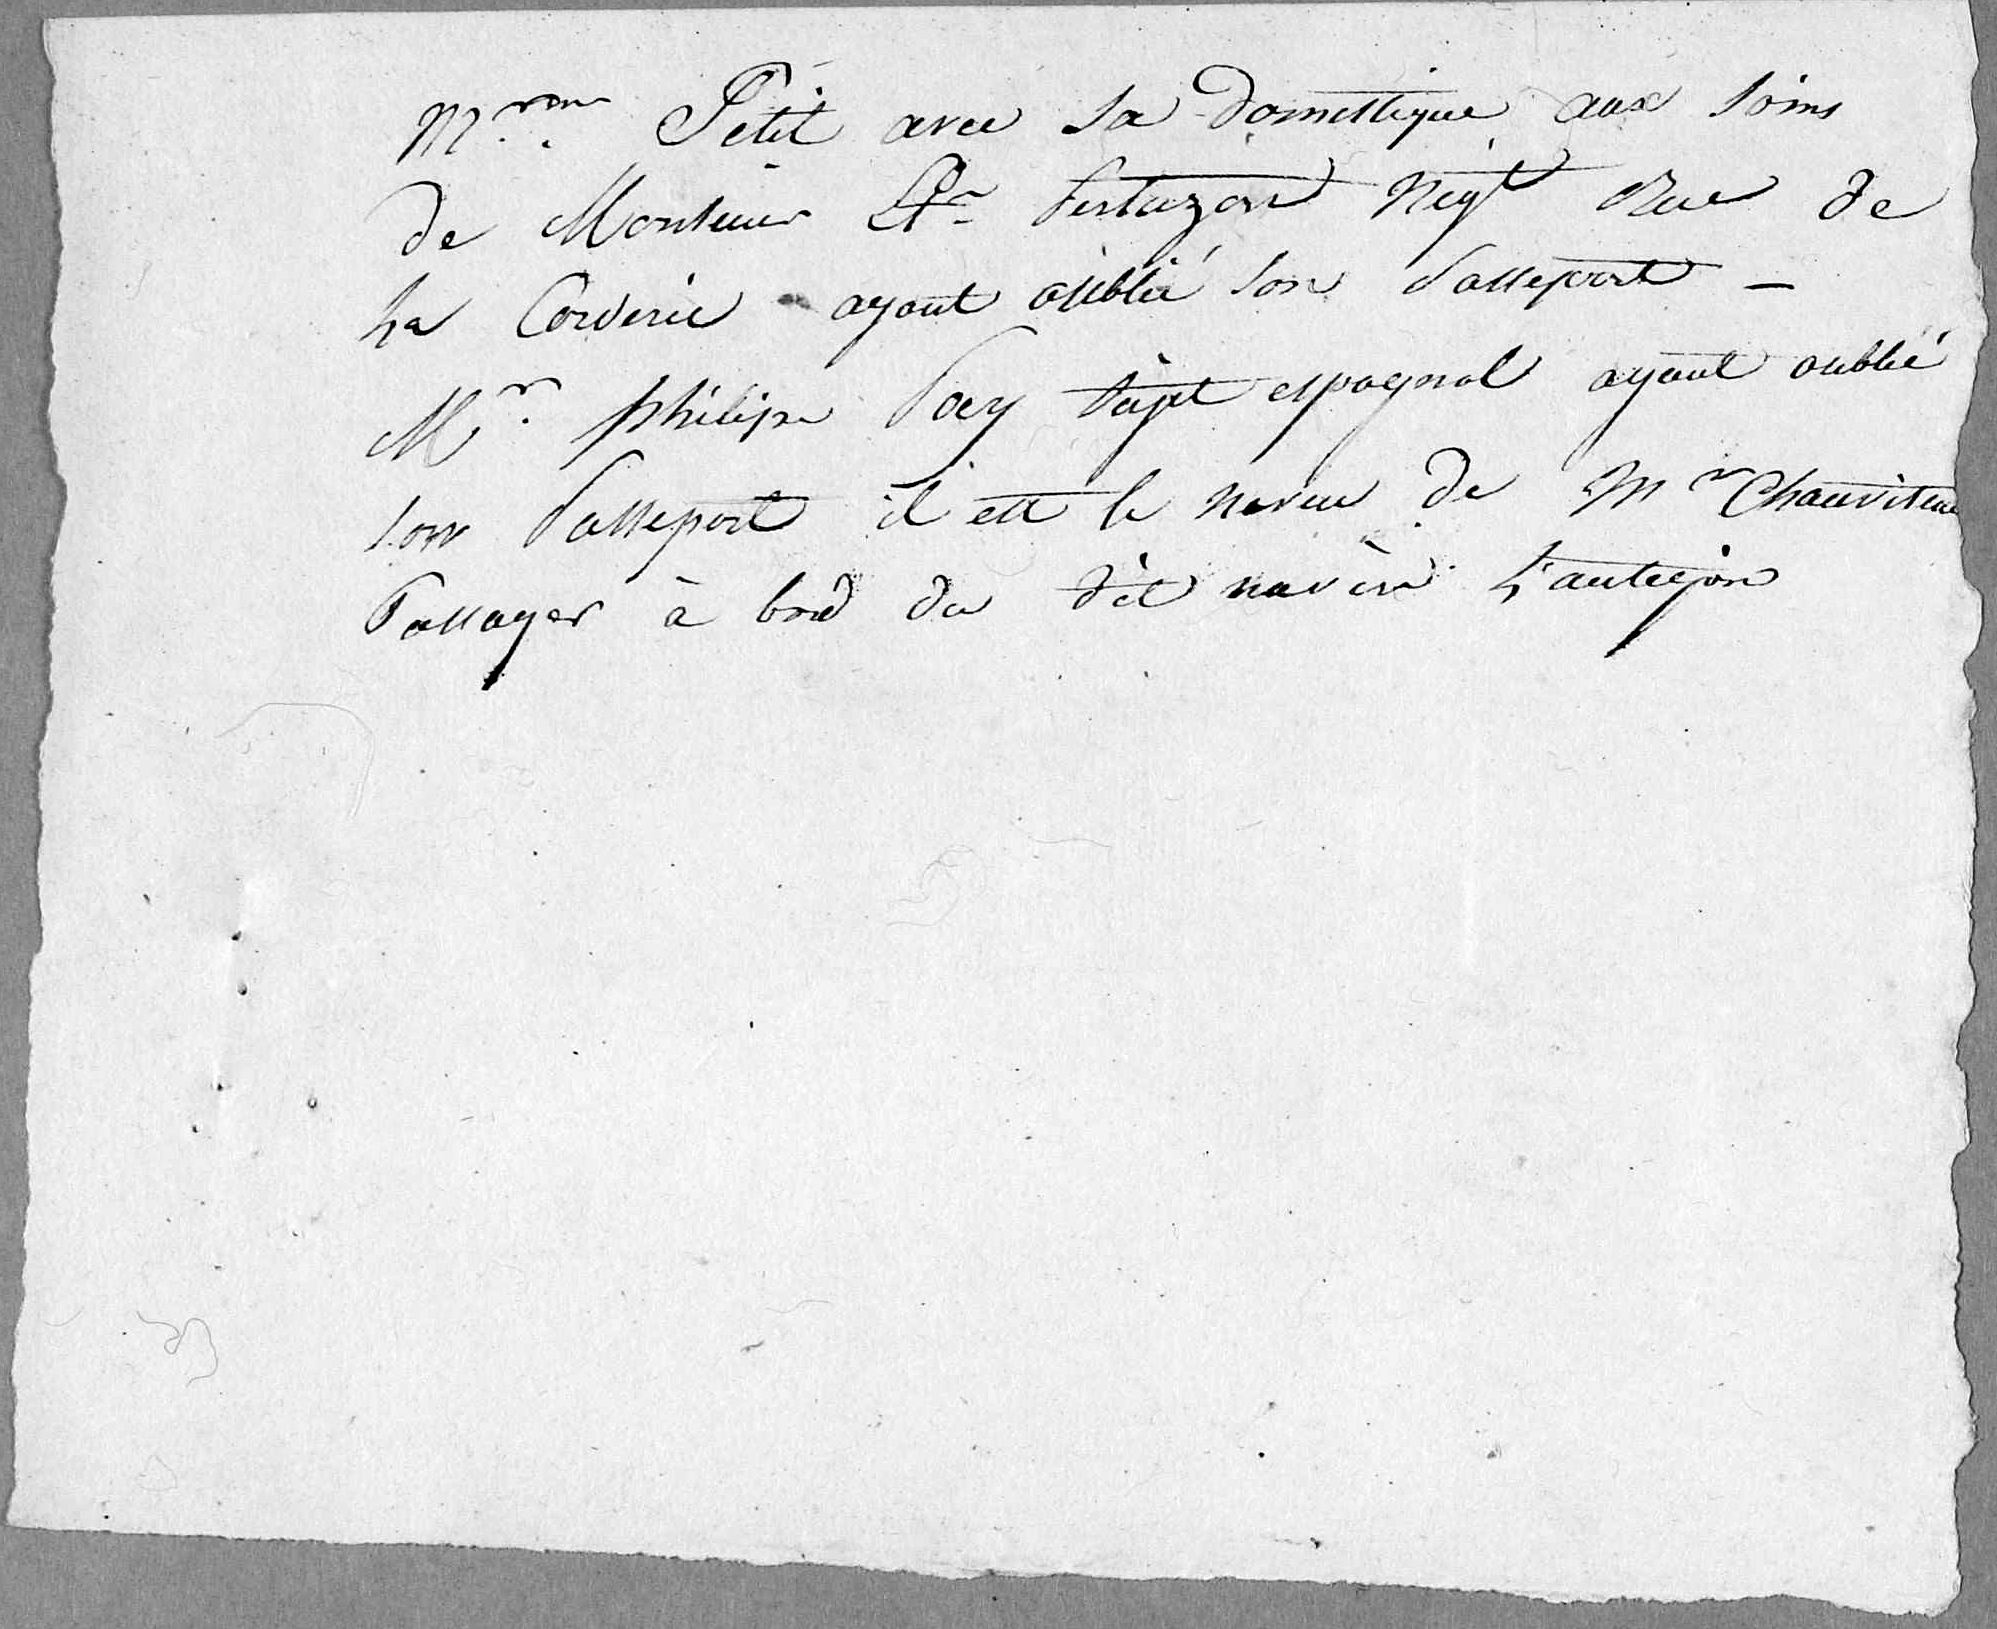 Mme. Petit avec sa domestique aux soins
de Monsieur Negt Rue de
la Corderie ayant oublié son Passeport —
Mr. philipe Pay sujet espagnol ayant oublié
son Passeport il est le neveu de Mr Chauviteau
Passager à bord du dit navire L'antigone